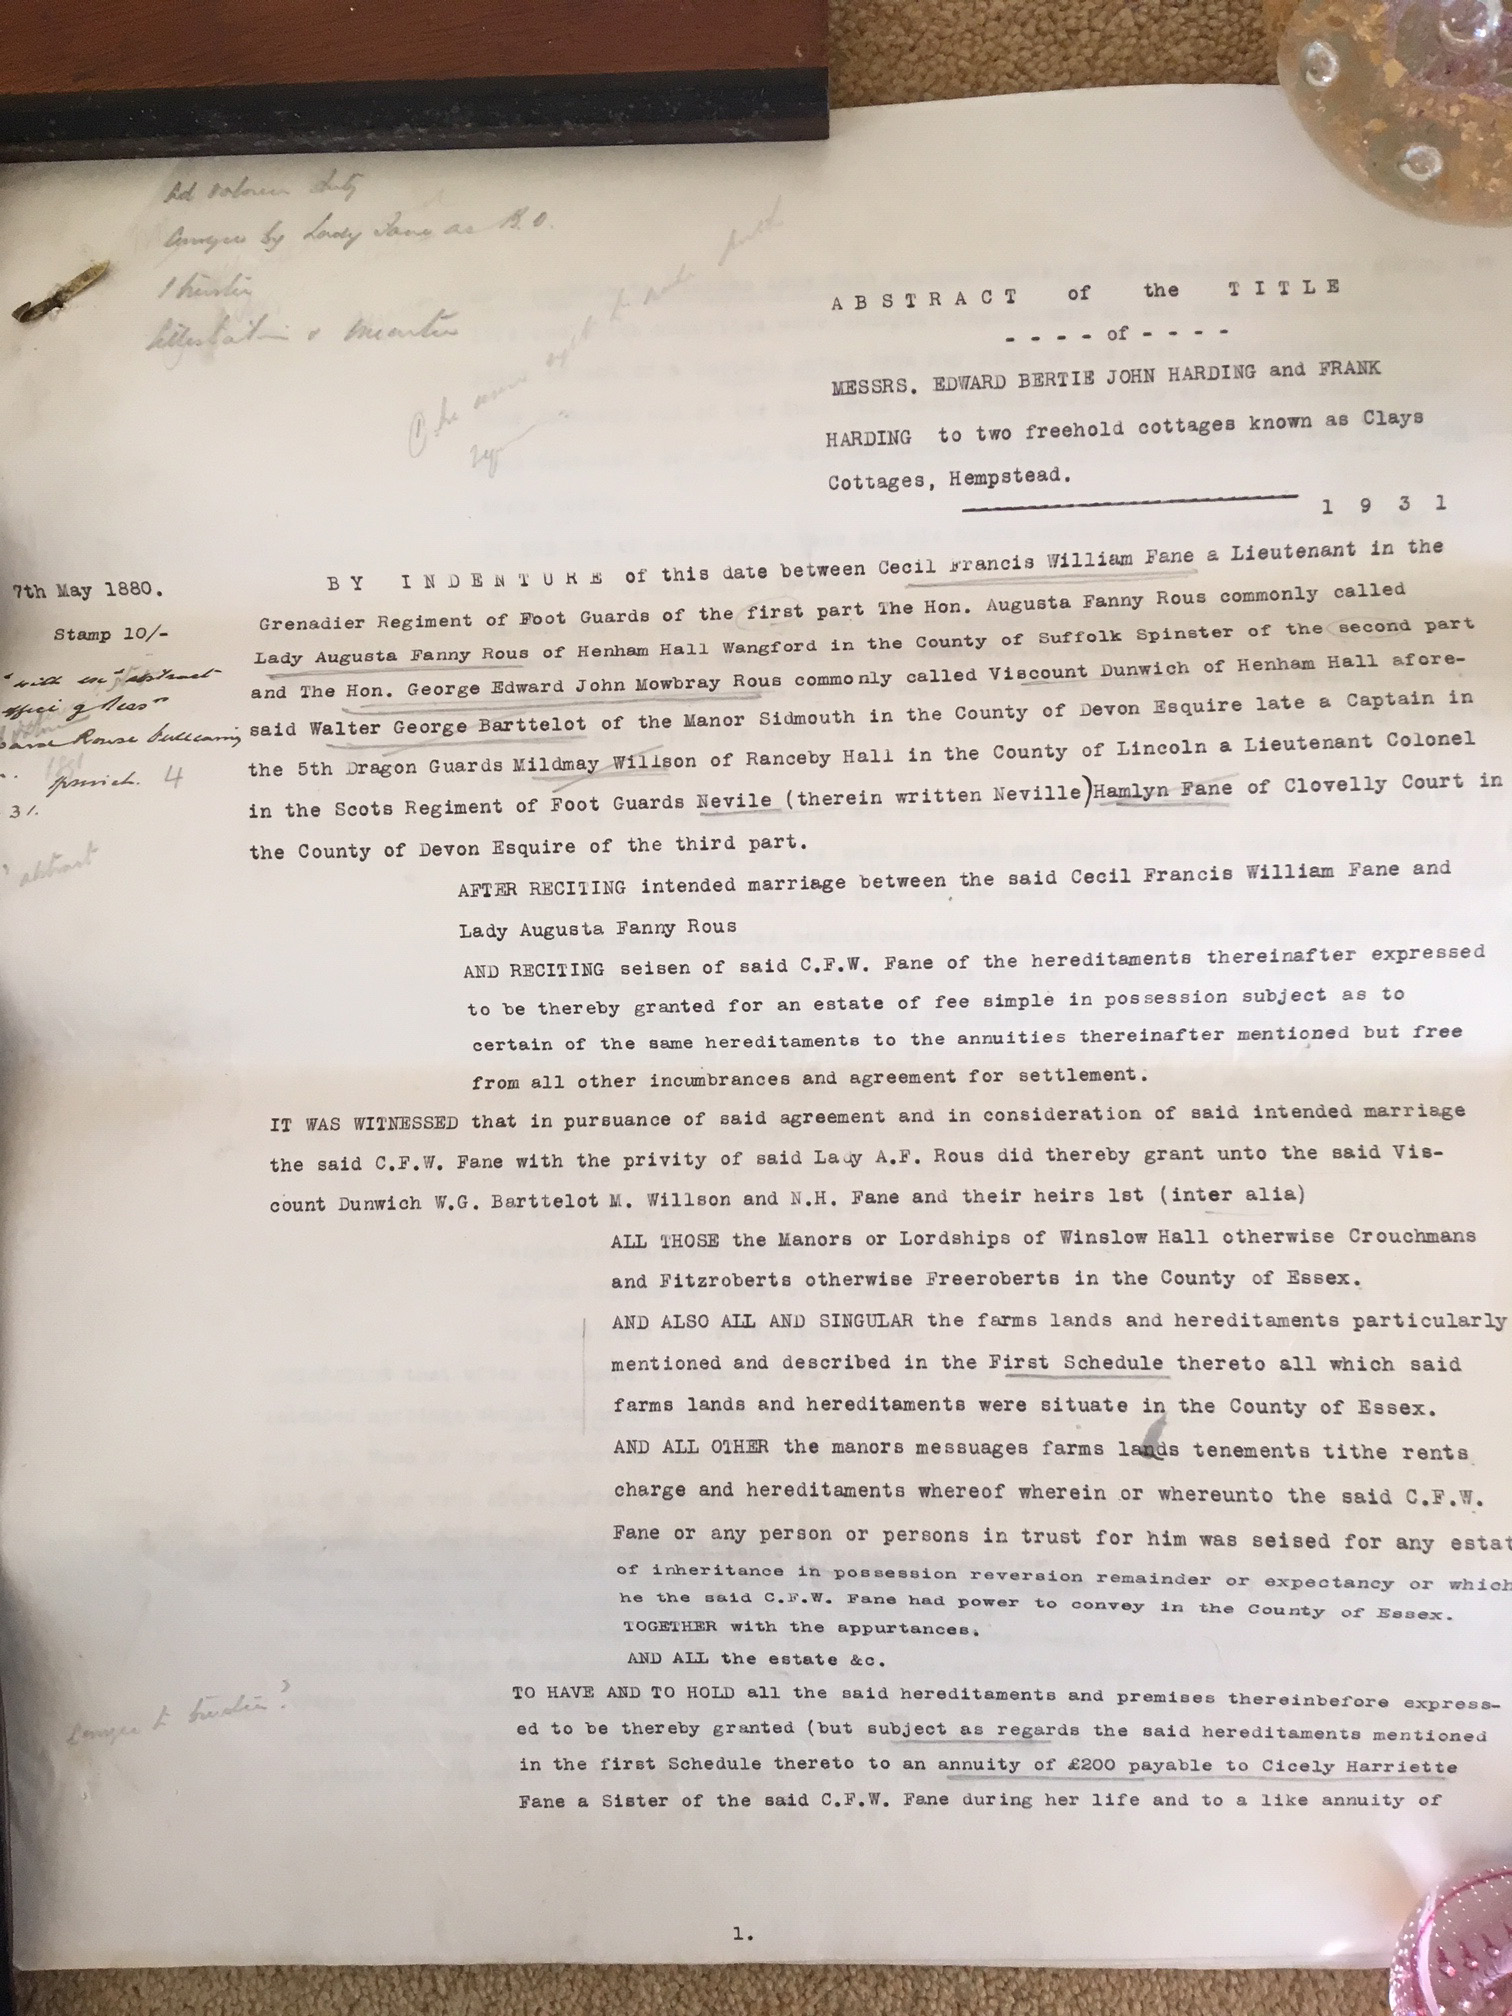 Ad valorem duty
by Lady Fane as B.O.
1 trustee
Attestation &
A B S T R A C T of the T I T L E
- - - - of - - - -
MESSRS. EDWARD BERTIE JOHN HARDING and FRANK
HARDING to two freehold cottages known as Clays
Cottages, Hempstead.
1 9 3 1
7th May 1880.
Stamp 10/-
Ipswich. 4
31.
abstract
BY I N D E N T U R E of this date between Cecil Francis William Fane a Lieutenant in the
Grenadier Regiment of Foot Guards of the first part The Hon. Augusta Fanny Rous commonly called
Lady Augusta Fanny Rous of Henham Hall Wangford in the County of Suffolk Spinster of the second part
and The Hon. George Edward John Mowbray Rous commonly called Viscount Dunwich of Henham Hall afore-
said Walter George Barttelot of the Manor Sidmouth in the County of Devon Esquire late a Captain in
the 5th Dragon Guards Mildmay Willson of Ranceby Hall in the County of Lincoln a Lieutenant Colonel
in the Scots Regiment of Foot Guards Nevile (therein written Neville)Hamlyn Fane of Clovelly Court in
the County of Devon Esquire of the third part.
AFTER RECITING intended marriage between the said Cecil Francis William Fane and
Lady Augusta Fanny Rous
AND RECITING seisen of said C.F.W. Fane of the hereditaments thereinafter expressed
to be thereby granted for an estate of fee simple in possession subject as to
certain of the same hereditaments to the annuities thereinafter mentioned but free
from all other incumbrances and agreement for settlement.
IT WAS WITNESSED that in pursuance of said agreement and in consideration of said intended marriage
the said C.F.W. Fane with the privity of said Lady A.F. Rous did thereby grant unto the said Vis-
count Dunwich W.G. Barttelot M. Willson and N.H. Fane and their heirs 1st (inter alia)
ALL THOSE the Manors or Lordships of Winslow Hall otherwise Crouchmans
and Fitzroberts otherwise Freeroberts in the County of Essex.
AND ALSO ALL AND SINGULAR the farms lands and hereditaments particularly
mentioned and described in the First Schedule thereto all which said
farms lands and hereditaments were situate in the County of Essex.
AND ALL OTHER the manors messuages farms lands tenements tithe rents
charge and hereditaments whereof wherein or whereunto the said C.F.W.
Fane or any person or persons in trust for him was seised for any estat
of inheritance in possession reversion remainder or expectancy or which
he the said C.F.W. Fane had power to convey in the County of Essex.
TOGETHER with the appurtances.
AND ALL the estate &c.
TO HAVE AND TO HOLD all the said hereditaments and premises thereinbefore express-
ed to be thereby granted (but subject as regards the said hereditaments mentioned
in the first Schedule thereto to an annuity of £200 payable to Cicely Harriette
Fane a Sister of the said C.F.W. Fane during her life and to a like annuity of
1.